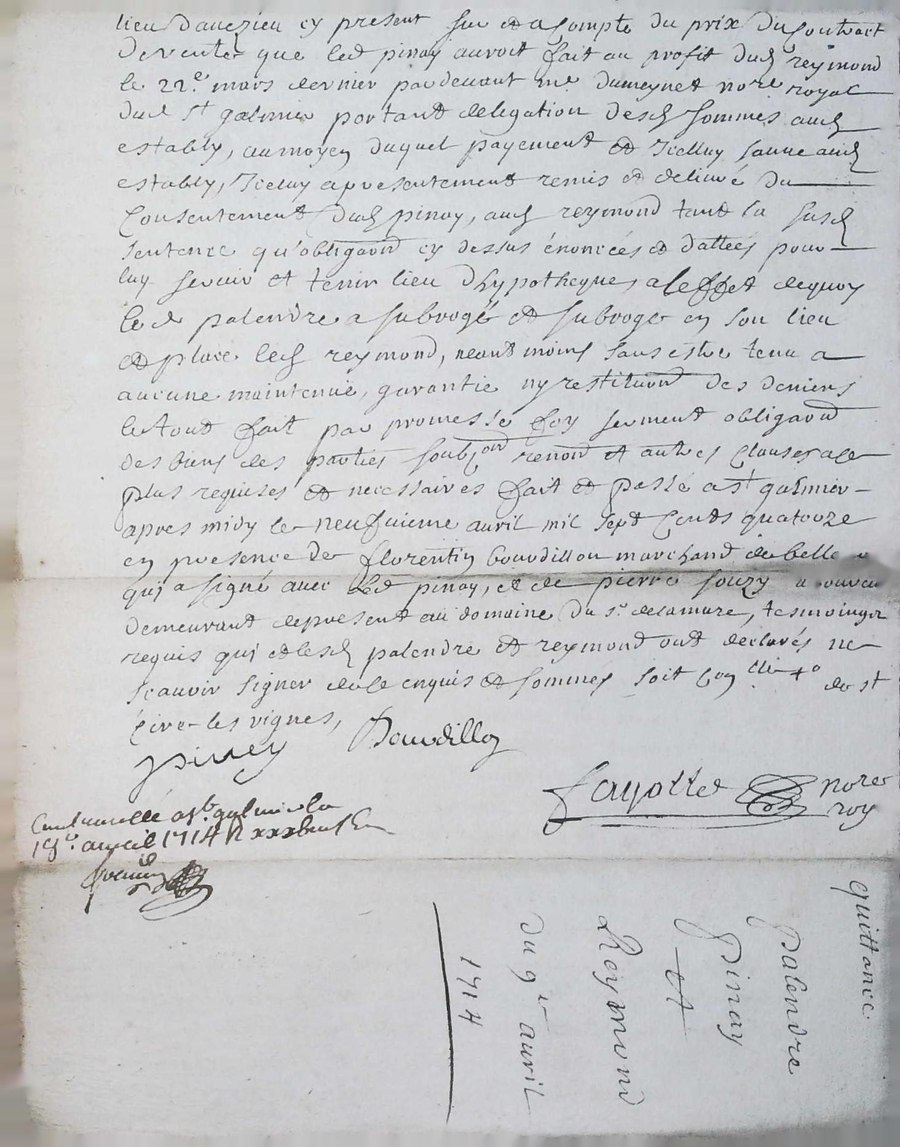 lieu d'auezieu cy present sur et a compte du prix du Contract
de vente que led pinay auroit fait au profit dud reymond
le 22e mars dernier pardeuant me dumeynet nore royal
dud st galmier portant delegation desd sommes aud
estably, aumoyen duquel payement et Icelluy sauue aud
estably, Iceluy a presentement remis et deliuré du
Consentement dud pinay, aud reymond tant la susd
sentence qu'obligaond cy dessus énoncées et dattées pour
luy seruir et tenir lieu d'hypotheque, a leffet dequoy
led palendre a subrogé et subroge en son lieu
et place led reymond, neantmoins sans estre tenu a
aucune maintenue, garantie ny restituond des deniers
le tout fait par promesse foy serment obligaond
des biens des parties soubçond renond et autres Clauses ale
plus requises et necessaires fait et passé a st galmier
apres midy le neufuieme auril mil sept Cents quatorze
en presence de florentin bourdillon marchand de belle
qui a signé auec led pinay, et de pierre souzy
demeurant depresent au domaine du sr delamure, tesmoings
requis qui et lesd palendre et reymond ont declarés ne
scauoir signer de ce enquis et sommés soit de st
Cire les vignes,
Pinay Bourdillon
Fayolle nore roy
Controollé a st galmier le
auril 1714 R
quittance
Palendre
Pinay
et
Reymond
du 9e auril
1714